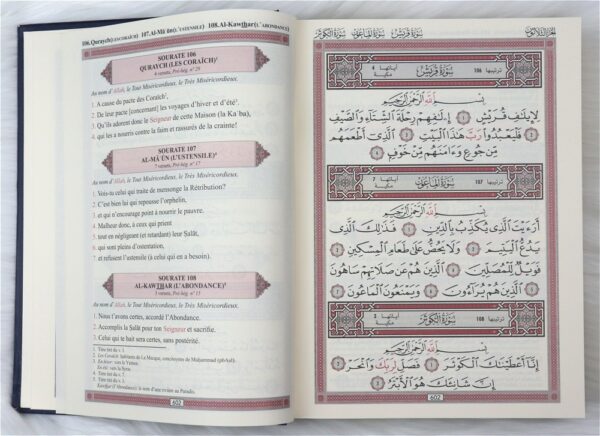 106.Quraych(LES CORAÏCH) 107.Al-Mâ'ûn(L'USTENSILE) 108.Al-Kawthar(L'ABONDANCE)
SOURATE 106
QURAYCH (LES CORAÏCH)¹
4 versets, Pré-hég. n° 29
Au nom d'Allah, le Tout Miséricordieux, le Très Miséricordieux.
1. A cause du pacte des Coraïch²,
2. De leur pacte [concernant] les voyages d'hiver et d'été³.
3. Qu'ils adorent donc le Seigneur de cette Maison (la Ka'ba),
4. qui les a nourris contre la faim et rassurés de la crainte!
SOURATE 107
AL-MÂ'ÛN (L'USTENSILE)⁴
7 versets, Pré-hég. n° 17
Au nom d'Allah, le Tout Miséricordieux, le Très Miséricordieux.
1. Vois-tu celui qui traite de mensonge la Rétribution?
2. C'est bien lui qui repousse l'orphelin,
3. et qui n'encourage point à nourrir le pauvre.
4. Malheur donc, à ceux qui prient
5. tout en négligeant (et retardant) leur Salât,
6. qui sont pleins d'ostentation,
7. et refusent l'ustensile (à celui qui en a besoin).
SOURATE 108
AL-KAWTHAR (L'ABONDANCE)⁵
3 versets, Pré-hég. n° 15
Au nom d'Allah, le Tout Miséricordieux, le Très Miséricordieux.
1. Nous t'avons certes, accordé l'Abondance.
2. Accomplis la Salât pour ton Seigneur et sacrifie.
3. Celui qui te hait sera certes, sans postérité.
1. Titre tiré du v. 1.
2. Les Coraïch: habitants de La Mecque, concitoyens de Muhammad (pbAsl).
3. En hiver: vers le Yémen.
En été: vers la Syrie.
4. Titre tiré du v. 7.
5. Titre tiré du v. 1.
Kawthar (l'Abondance): le nom d'une rivière au Paradis.
602
الجزء الثلاثون سورة قريش سورة الماعون سورة الكوثر
ترتيبها 106 سُورَةُ قُرَيْشٍ آياتها 4 مكية
بِسْمِ اللَّهِ الرَّحْمَٰنِ الرَّحِيمِ
لِإِيلَٰفِ قُرَيْشٍ ١ إِۦلَٰفِهِمْ رِحْلَةَ الشِّتَآءِ وَالصَّيْفِ
٢ فَلْيَعْبُدُوا۟ رَبَّ هَٰذَا الْبَيْتِ ٣ الَّذِىٓ أَطْعَمَهُم
مِّن جُوعٍ وَءَامَنَهُم مِّنْ خَوْفٍۭ ٤
ترتيبها 107 سُورَةُ الْمَاعُونِ آياتها 7 مكية
بِسْمِ اللَّهِ الرَّحْمَٰنِ الرَّحِيمِ
أَرَءَيْتَ الَّذِى يُكَذِّبُ بِالدِّينِ ١ فَذَٰلِكَ الَّذِى
يَدُعُّ الْيَتِيمَ ٢ وَلَا يَحُضُّ عَلَىٰ طَعَامِ الْمِسْكِينِ ٣
فَوَيْلٌ لِّلْمُصَلِّينَ ٤ الَّذِينَ هُمْ عَن صَلَاتِهِمْ سَاهُونَ
٥ الَّذِينَ هُمْ يُرَآءُونَ ٦ وَيَمْنَعُونَ الْمَاعُونَ ٧
ترتيبها 108 سُورَةُ الْكَوْثَرِ آياتها 3 مكية
بِسْمِ اللَّهِ الرَّحْمَٰنِ الرَّحِيمِ
إِنَّآ أَعْطَيْنَٰكَ الْكَوْثَرَ ١ فَصَلِّ لِرَبِّكَ وَانْحَرْ ٢
إِنَّ شَانِئَكَ هُوَ الْأَبْتَرُ ٣
602